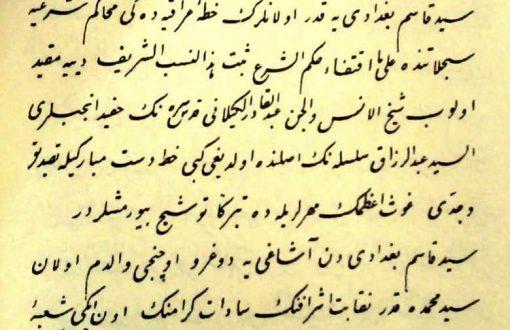 سيد قاسم بغدادى يه قدر اولانلرك خطهٔ عراقيه ده كى محاكم شرعيه
سجلاتنده على ما اقتضاه حكم الشرع ثبت هذا النسب الشريف دييه مقيد
اولوب شيخ الانس والجن عبدالقادر الكيلانى قدس سره نك حفيد انجبلرى
السيد عبدالرزاق سلسله نك اصلنده اولديغى كبى خط دست مباركيله تصديق
وجدى غوث اعظمك مهريله ده تبركا توشيح بيورمشلردر
سيد قاسم بغدادى دن آشاغى يه دوغرو اوچنجى والدم اولان
سيد محمده قدر نقابت اشرافنك سادات كرامنك اون ايكى شعبهٔ